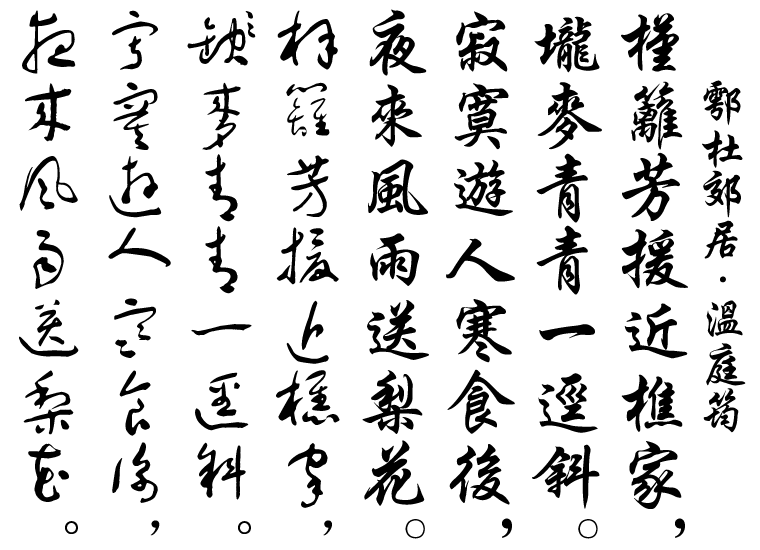 鄠杜郊居·溫庭筠
槿籬芳援近樵家，
壠麥青青一逕斜。
寂寞遊人寒食後，
夜來風雨送梨花。
槿籬芳援近樵家，
壠麥青青一逕斜。
寂寞遊人寒食後，
夜來風雨送梨花。